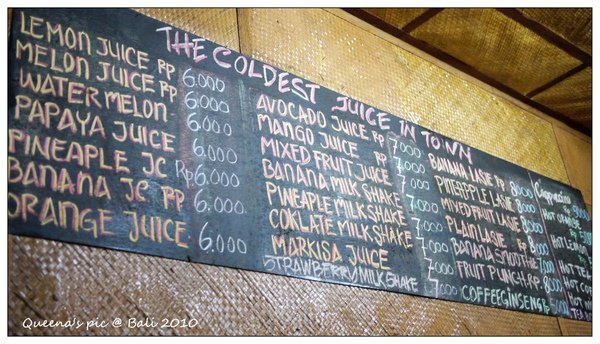 THE COLDEST JUICE IN TOWN
LEMON JUICE RP 6.000
MELON JUICE RP 6.000
WATERMELON 6.000
PAPAYA JUICE 6.000
PINEAPPLE JC Rp 6.000
BANANA JC RP 6.000
ORANGE JUICE 6,000
AVOCADO JUICE RP 7.000
MANGO JUICE 7.000
MIXED FRUIT JUICE 7.000
BANANA MILK SHAKE 7.000
PINEAPLE MILK SHAKE 7.000
COKLATE MILK SHAKE 7.000
MARKISA JUICE 7.000
STRAWBERRY MILK SHAKE 7.000
BANANA LASIE RP 8000
PINEPPLE LASIE RP 8000
MIXED FRUIT LASIE 8000
PLAIN LASIE RP 8000
BANANA SMOOTHIE
FRUIT PUNCH RP
COFFEE GINSENG
Cappucino
HOT
HOT LEMON
HOT
HOT TEA
HOT
Queena's pic @ Bali 2010